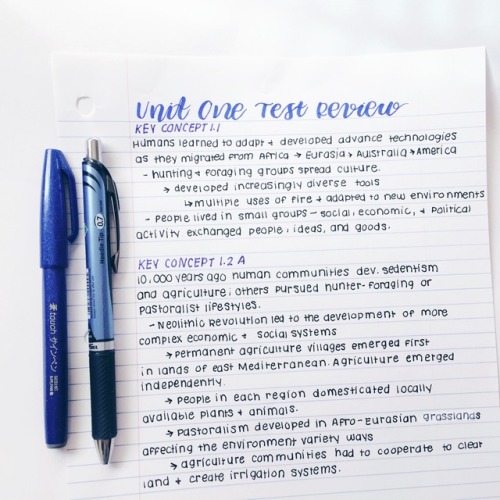 Unit One Test Review
KEY CONCEPT 1.1
Humans learned to adapt + developed advance technologies
as they migrated from Africa → Eurasia → Australia → America
- hunting + foraging groups spread culture.
→ developed increasingly diverse tools
↳ multiple uses of fire + adapted to new environments
- People lived in small groups - social, economic, + political
activity exchanged people, ideas, and goods.
KEY CONCEPT 1.2 A
10,000 years ago human communities dev. sedentism
and agriculture; others pursued hunter-foraging or
pastoralist lifestyles.
- Neolithic Revolution led to the development of more
complex economic + social systems
→ permanent agriculture villages emerged first
in lands of east Mediterranean. Agriculture emerged
independently.
→ people in each region domesticated locally
available plants + animals.
→ pastoralism developed in Afro-Eurasian grasslands
affecting the environment variety ways
→ agriculture communities had to cooperate to clear
land + create irrigation systems.
touch サインペン
Needle Tip 0.7